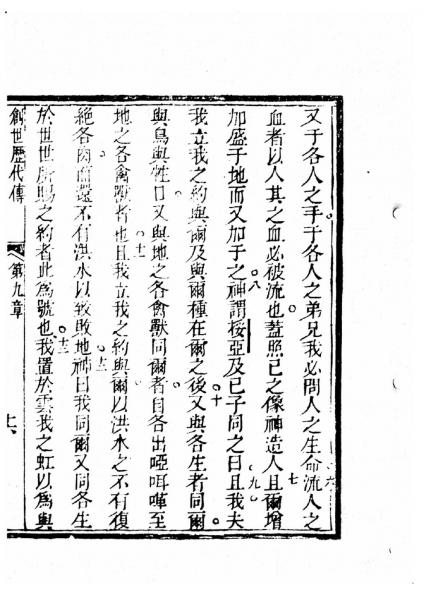 又于各人之手于各人之弟兄我必問人之生命六流人之
血者以人其之血必被流也蓋照己之像神造人七且爾增
加盛于地而又加于之八神謂挼亞及已子同之曰九且我夫
我立我之約與爾及與爾種在爾之後十又與各生者同爾
與鳥與牲口又與地之各禽獸同爾者自各出啞咡嗶至
地之各禽獸者也十一且我立我之約與爾以洪水之不有復
絕各肉而還不有洪水以致敗地十二神曰我同爾又同各生
於世世所賜之約者此為號也十三我置於雲我之虹以為與
創世歷代傳 第九章